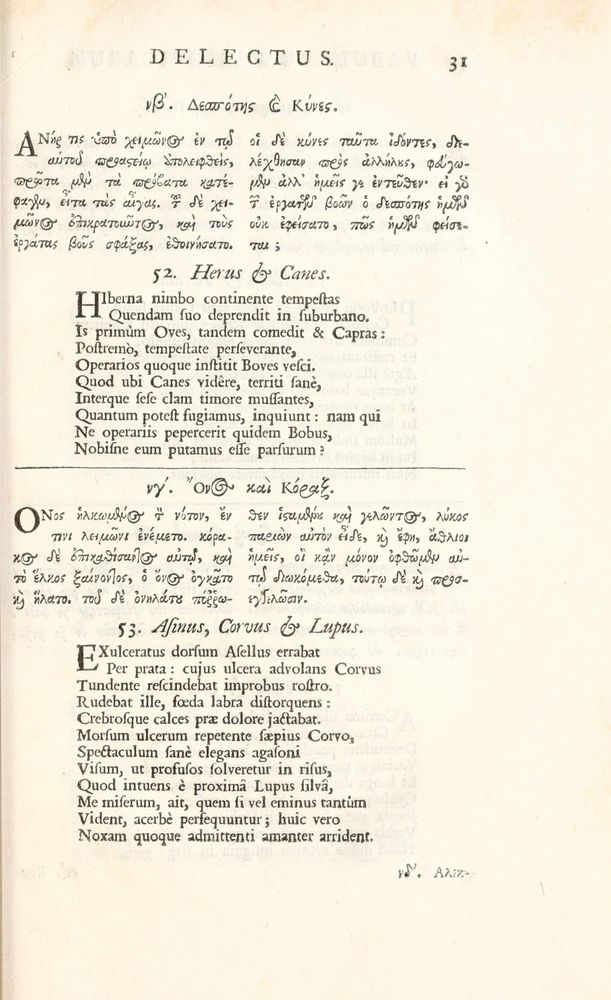 DELECTUS. 31
νβ΄. Δεσπότης & Κύνες.
ΑΝήρ τις ὑπὸ χειμῶνος ἐν τῷ
αὑτοῦ προαστείῳ ὑπολειφθεὶς,
πρῶτα μὲν τὰ πρόβατα κατέ-
φαγεν, εἶτα τὰς αἶγας. τοῦ δὲ χει-
μῶνος ἐπικρατοῦντος, καὶ τοὺς
ἐργάτας βοῦς σφάξας, ἐθοινήσατο.
οἱ δὲ κύνες ταῦτα ἰδόντες, διε-
λέχθησαν πρὸς ἀλλήλους, φεύγω-
μεν ἀλλ' ἡμεῖς γε ἐντεῦθεν· εἰ γὸ
τῶν ἐργατῶν βοῶν ὁ δεσπότης ἡμῶν
οὐκ ἐφείσατο, πῶς ἡμῶν φείσε-
ται;
52. Herus & Canes.
HIberna nimbo continente tempeſtas
Quendam ſuo deprendit in ſuburbano.
Is primùm Oves, tandem comedit & Capras:
Poſtremò, tempeſtate perſeverante,
Operarios quoque inſtitit Boves veſci.
Quod ubi Canes vidêre, territi ſanè,
Interque ſeſe clam timore muſſantes,
Quantum poteſt fugiamus, inquiunt: nam qui
Ne operariis pepercerit quidem Bobus,
Nobiſne eum putamus eſſe parſurum?
νγ΄. Ὄνος καὶ Κόραξ.
ΟΝος ἡλκωμένος τὸν νότον, ἔν
τινι λειμῶνι ἐνέμετο. κόρα-
κος δὲ ἐπικαθίσαντος αὐτῷ, καὶ
τὸ ἕλκος ξαίνοντος, ὁ ὄνος ὀγκᾶτο
κὶ ἥλατο. τοῦ δὲ ὀνηλάτου πόῤῥω-
θεν ἱσταμένου καὶ γελῶντος, λύκος
παριὼν αὐτὸν εἶδε, κὶ ἔφη, ἄθλιοι
ἡμεῖς, οἳ κἂν μόνον ὀφθῶμεν αὐ-
τῷ διωκόμεθα, τούτῳ δὲ κὶ προσ-
εγέλωσιν.
53. Aſinus, Corvus & Lupus.
EXulceratus dorſum Aſellus errabat
Per prata: cujus ulcera advolans Corvus
Tundente reſcindebat improbus roſtro.
Rudebat ille, fœda labra diſtorquens:
Crebroſque calces præ dolore jactabat.
Morſum ulcerum repetente ſæpius Corvo,
Spectaculum ſanè elegans agaſoni
Viſum, ut profuſos ſolveretur in riſus,
Quod intuens è proximâ Lupus ſilvâ,
Me miſerum, ait, quem ſi vel eminus tantùm
Vident, acerbè perſequuntur; huic vero
Noxam quoque admittenti amanter arrident.
νδ΄. Αλεκ-